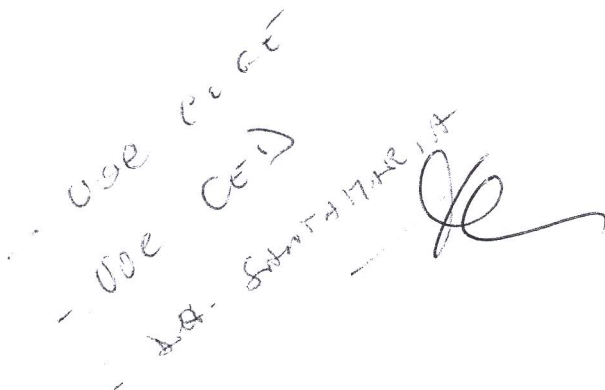 - UOC COGE
- UOC CED
- DR. SANTAMARIA